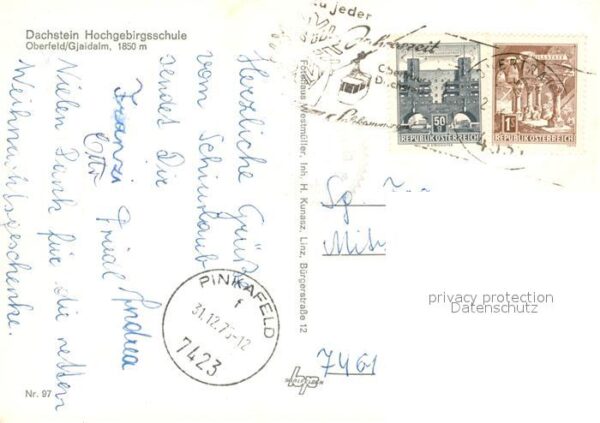 Dachstein Hochgebirgsschule
Oberfeld/Gjaidalm, 1850 m
Herzliche Grüße
vom Schiurlaub
sendet Dir
Franzi
Otto Friedl Andrea
Vielen Dank für die netten
Weihnachtsgeschenke.
Nr. 97
Fotohaus Westmüller, Inh. H. Kunasz, Linz, Bürgerstraße 12
zu jeder
Jahreszeit
50
REPUBLIK ÖSTERREICH
1S
REPUBLIK ÖSTERREICH
PINKAFELD
f
31.12.7
-12
7423
Sp.
7461
privacy protection
Datenschutz